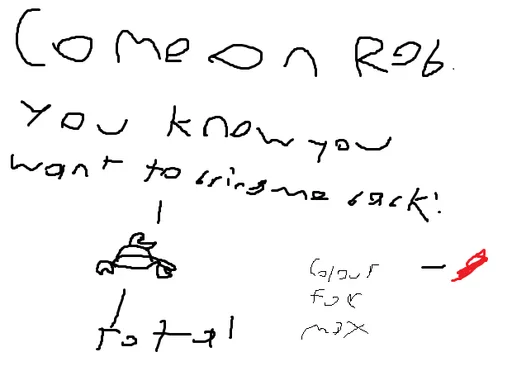 Come on Rob.
you know you
want to bring me back!
rotal
Colour
for
max